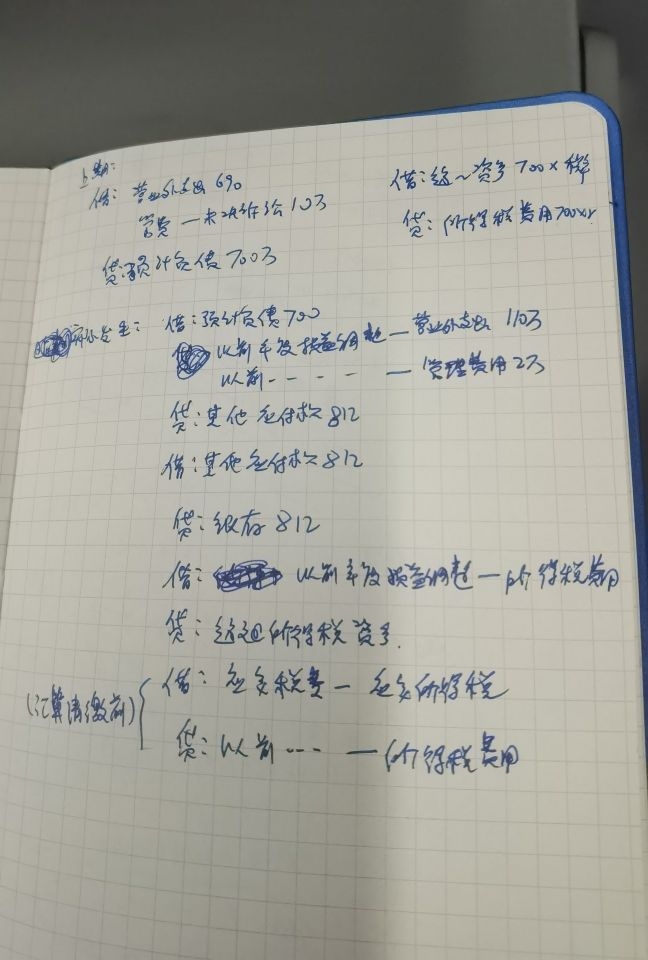 上期:
借: 营业外支出 690
管费 — 未决诉讼 10万
贷: 预计负债 700万
借: 递~资产 700×税率
贷: 所得税费用 700×r
实际发生: 借: 预计负债 700
以前年度损益调整 — 营业外支出 110万
以前 - - - - — 管理费用 2万
贷: 其他应付款 812
借: 其他应付款 812
贷: 银存 812
借: 以前年度损益调整 — 所得税费用
贷: 递延所得税资产.
(汇算清缴前) 借: 应交税费 — 应交所得税
贷: 以前 ---- — 所得税费用